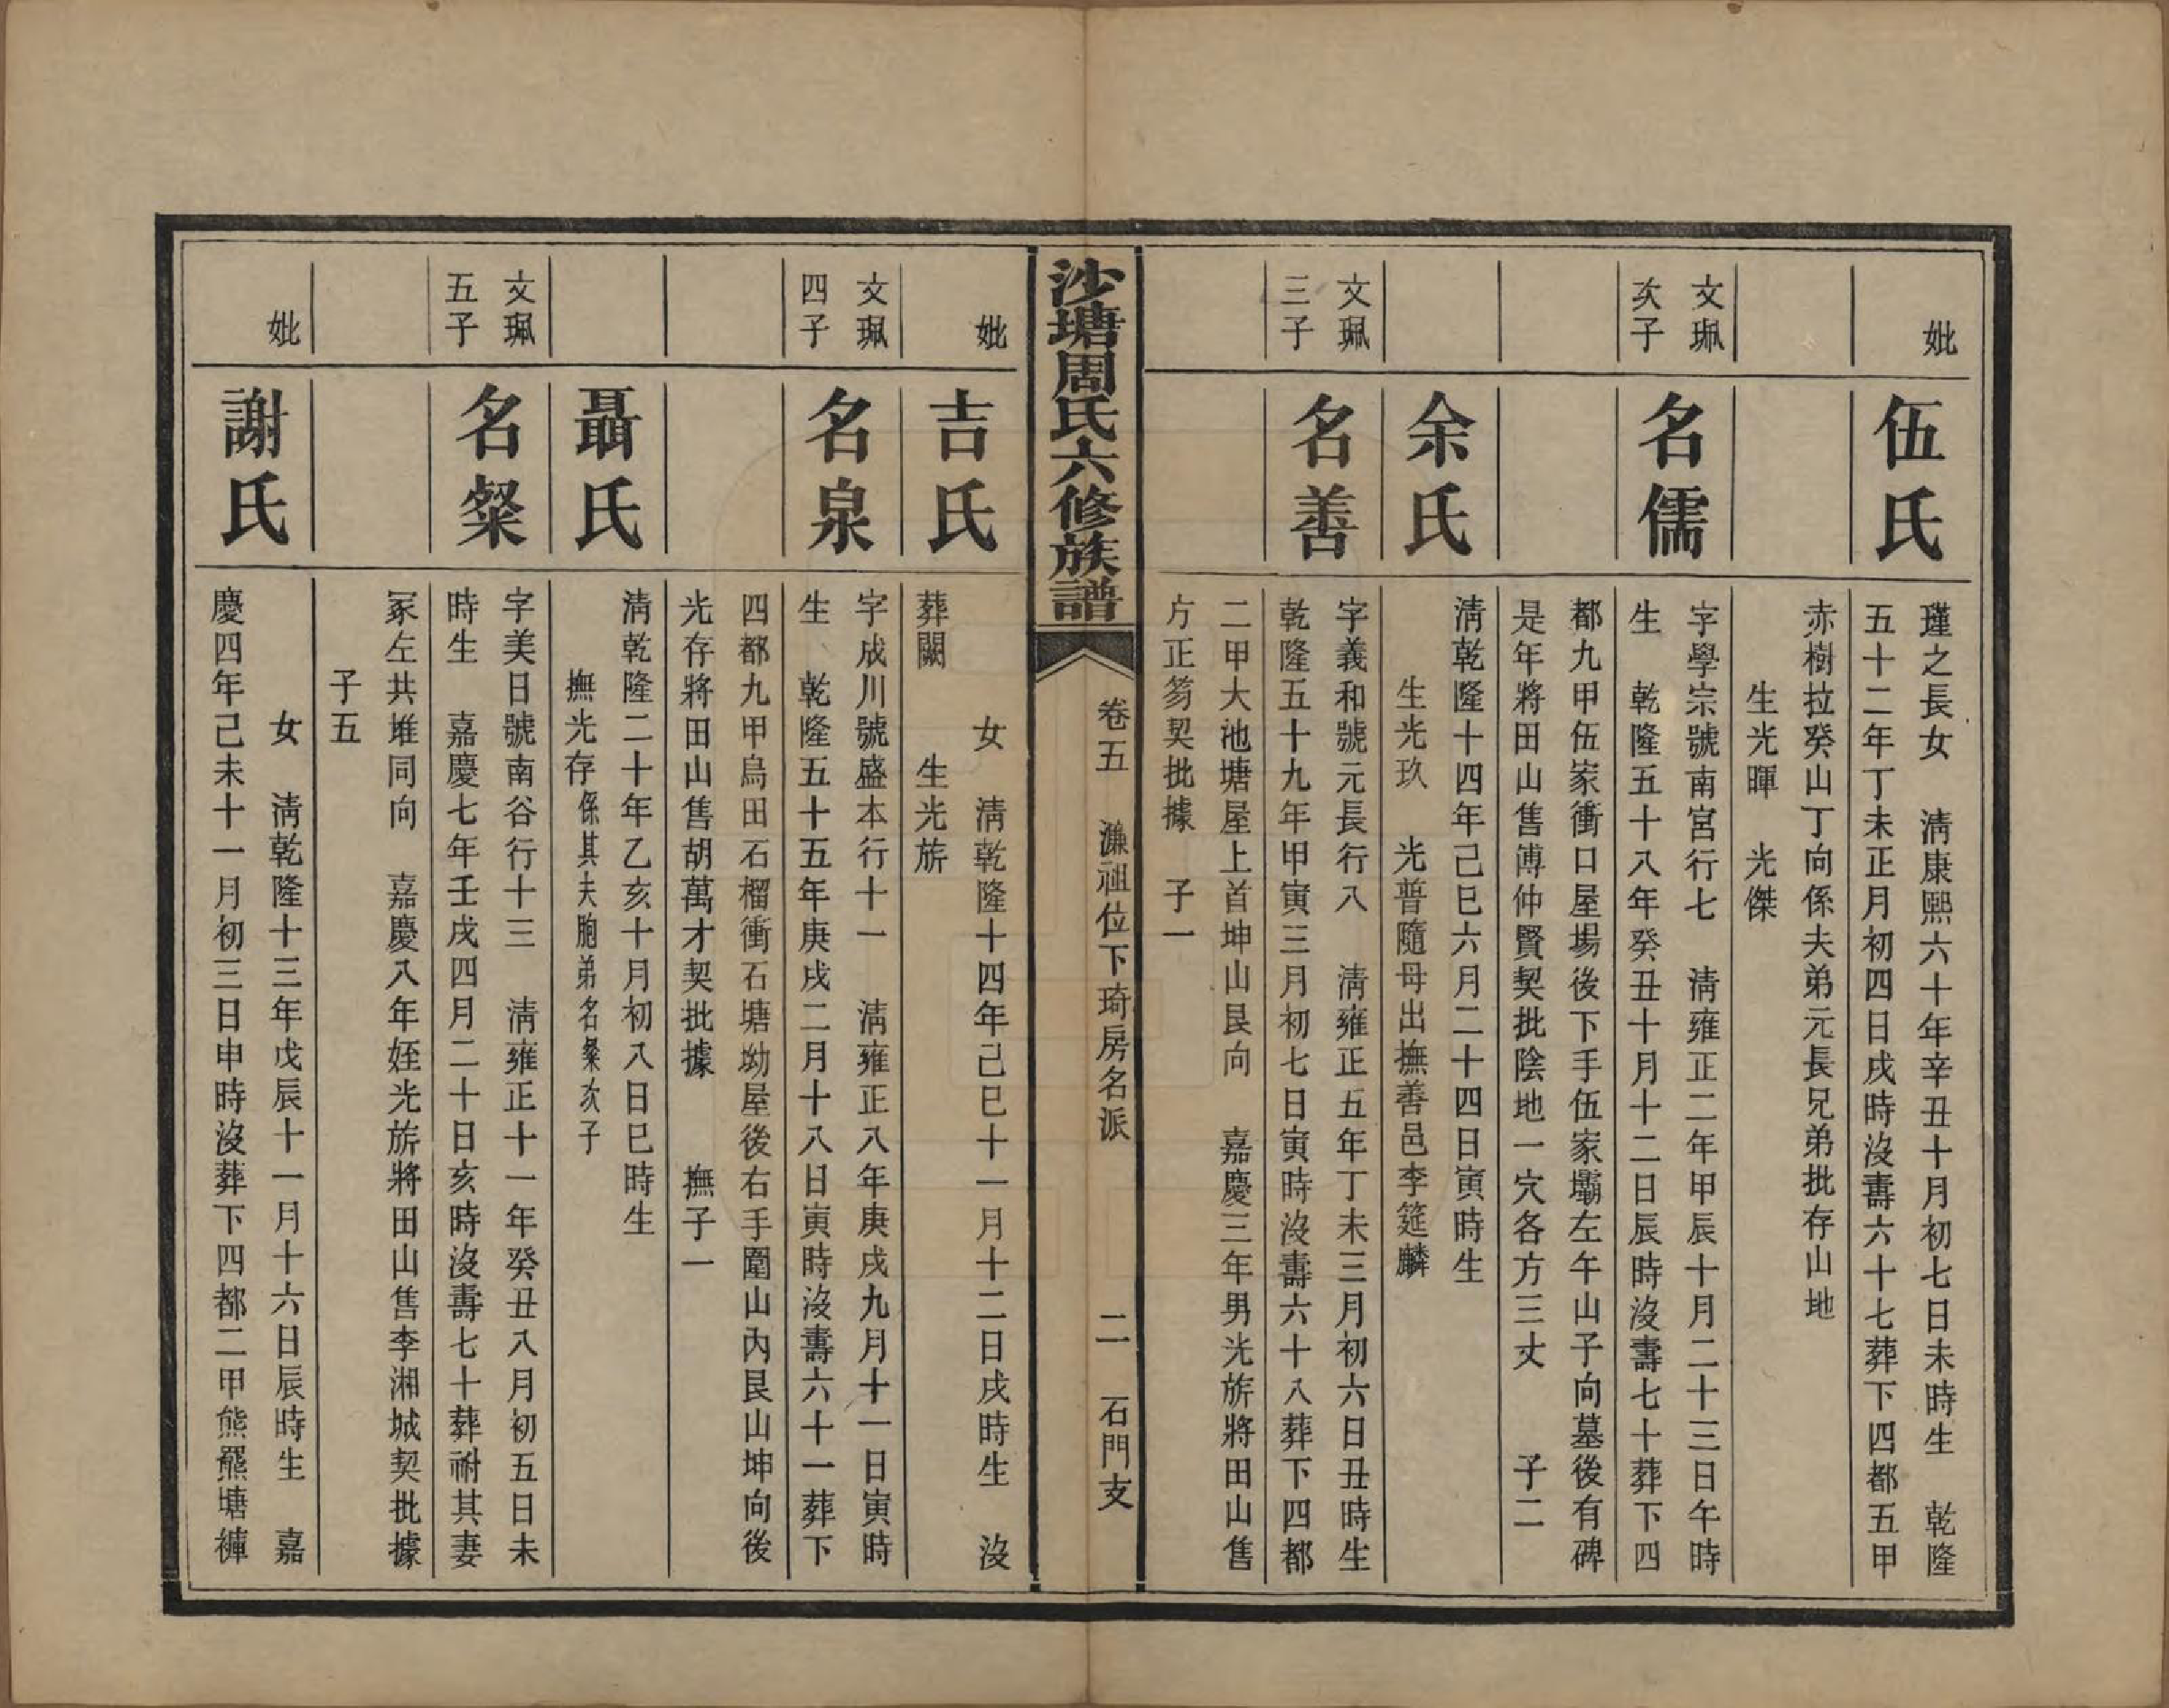 妣
伍氏
瑾之長女　清康熙六十年辛丑十月初七日未時生　乾隆
五十二年丁未正月初四日戌時沒壽六十七葬下四都五甲
赤樹拉癸山丁向係夫弟元長兄弟批存山地
生光暉　光傑
文珮
次子
名儒
字學宗號南宮行七　清雍正二年甲辰十月二十三日午時
生　乾隆五十八年癸丑十月十二日辰時沒壽七十葬下四
都九甲伍家衝口屋場後下手伍家壩左午山子向墓後有碑
是年將田山售傅仲賢契批陰地一穴各方三丈　子二
余氏
清乾隆十四年己巳六月二十四日寅時生
生光玖　光普隨母出撫善邑李筵麟
文珮
三子
名善
字義和號元長行八　清雍正五年丁未三月初六日丑時生
乾隆五十九年甲寅三月初七日寅時沒壽六十八葬下四都
二甲大池塘屋上首坤山艮向　嘉慶三年男光旂將田山售
方正笏契批據　子一
沙塘周氏六修族譜
卷五　濂祖位下琦房名派　二　石門支
妣
吉氏
女　清乾隆十四年己巳十一月十二日戌時生　沒
葬闕　生光旂
文珮
四子
名泉
字成川號盛本行十一　清雍正八年庚戌九月十一日寅時
生　乾隆五十五年庚戌二月十八日寅時沒壽六十一葬下
四都九甲烏田石榴衝石塘坳屋後右手圍山內艮山坤向後
光存將田山售胡萬才契批據　撫子一
聶氏
清乾隆二十年乙亥十月初八日巳時生
撫光存係其夫胞弟名粲次子
文珮
五子
名粲
字美日號南谷行十三　清雍正十一年癸丑八月初五日未
時生　嘉慶七年壬戌四月二十日亥時沒壽七十葬祔其妻
冢左共堆同向　嘉慶八年姪光旂將田山售李湘城契批據
子五
妣
謝氏
女　清乾隆十三年戊辰十一月十六日辰時生　嘉
慶四年己未十一月初三日申時沒葬下四都二甲熊羆塘褲